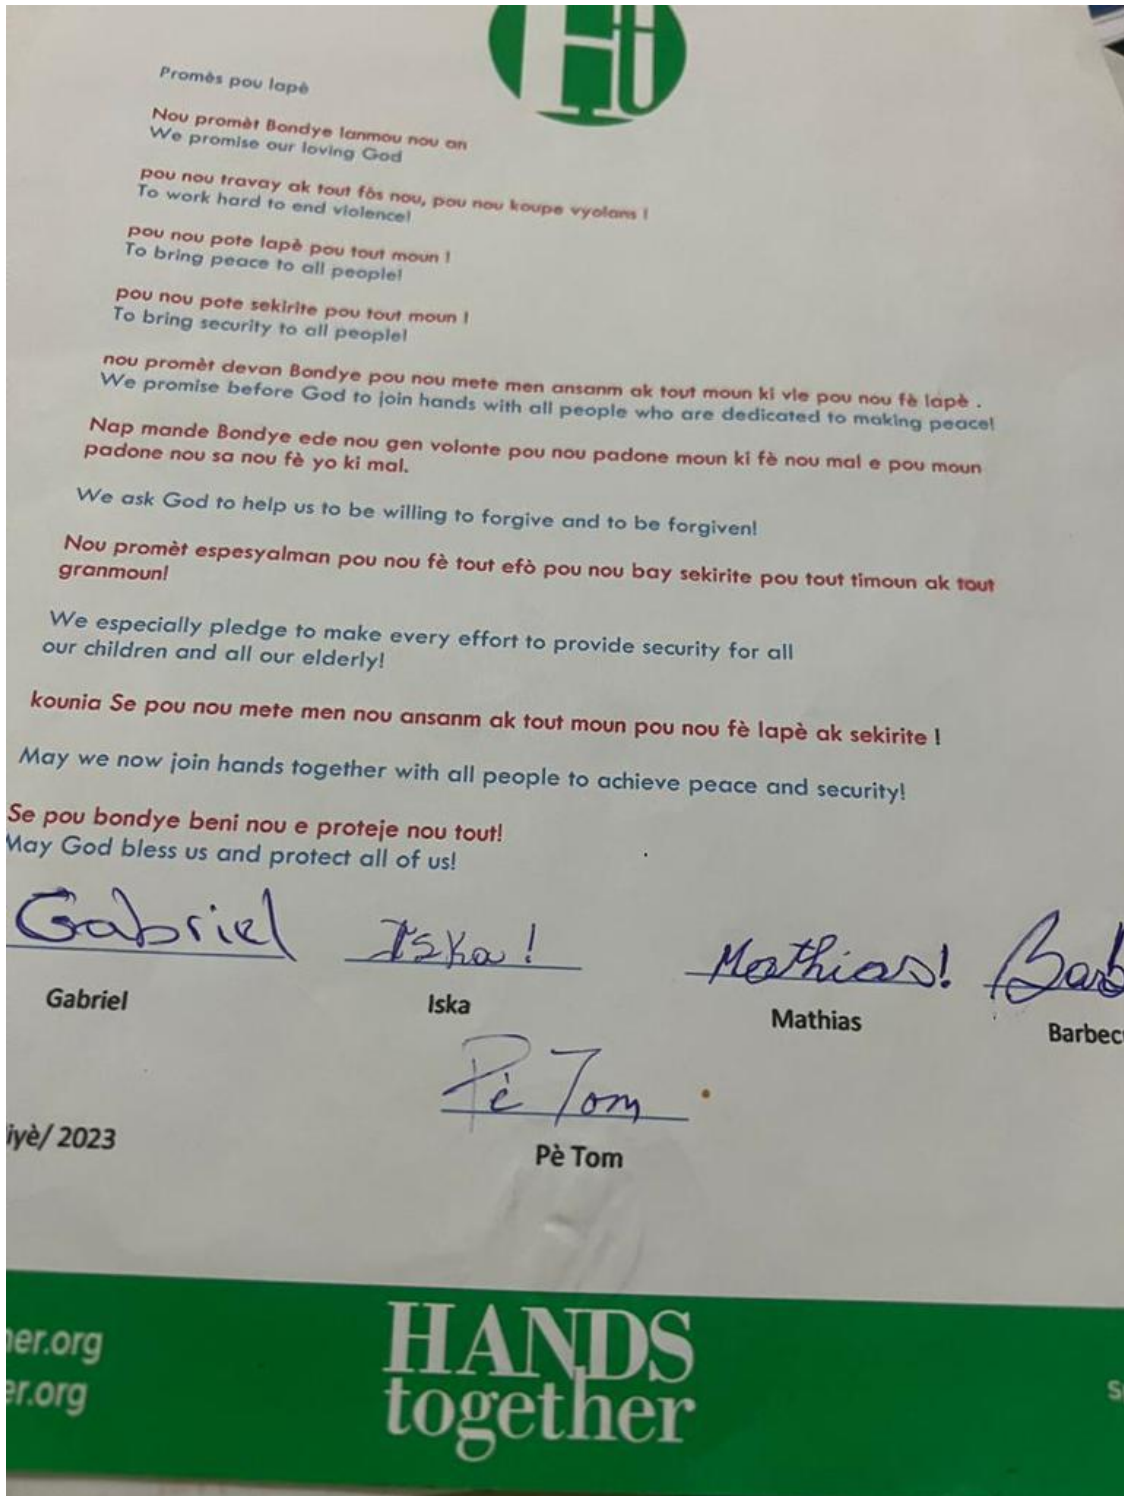 Promès pou lapè
Nou promèt Bondye lanmou nou an
We promise our loving God
pou nou travay ak tout fòs nou, pou nou koupe vyolans !
To work hard to end violence!
pou nou pote lapè pou tout moun !
To bring peace to all people!
pou nou pote sekirite pou tout moun !
To bring security to all people!
nou promèt devan Bondye pou nou mete men ansanm ak tout moun ki vle pou nou fè lapè .
We promise before God to join hands with all people who are dedicated to making peace!
Nap mande Bondye ede nou gen volonte pou nou padone moun ki fè nou mal e pou moun
padone nou sa nou fè yo ki mal.
We ask God to help us to be willing to forgive and to be forgiven!
Nou promèt espesyalman pou nou fè tout efò pou nou bay sekirite pou tout timoun ak tout
granmoun!
We especially pledge to make every effort to provide security for all
our children and all our elderly!
kounia Se pou nou mete men nou ansanm ak tout moun pou nou fè lapè ak sekirite !
May we now join hands together with all people to achieve peace and security!
Se pou bondye beni nou e proteje nou tout!
May God bless us and protect all of us!
Gabriel Iska! Mathias! Barb
Gabriel Iska Mathias Barbec
Pè Tom
Pè Tom
iyè/ 2023
er.org
er.org
HANDS
together